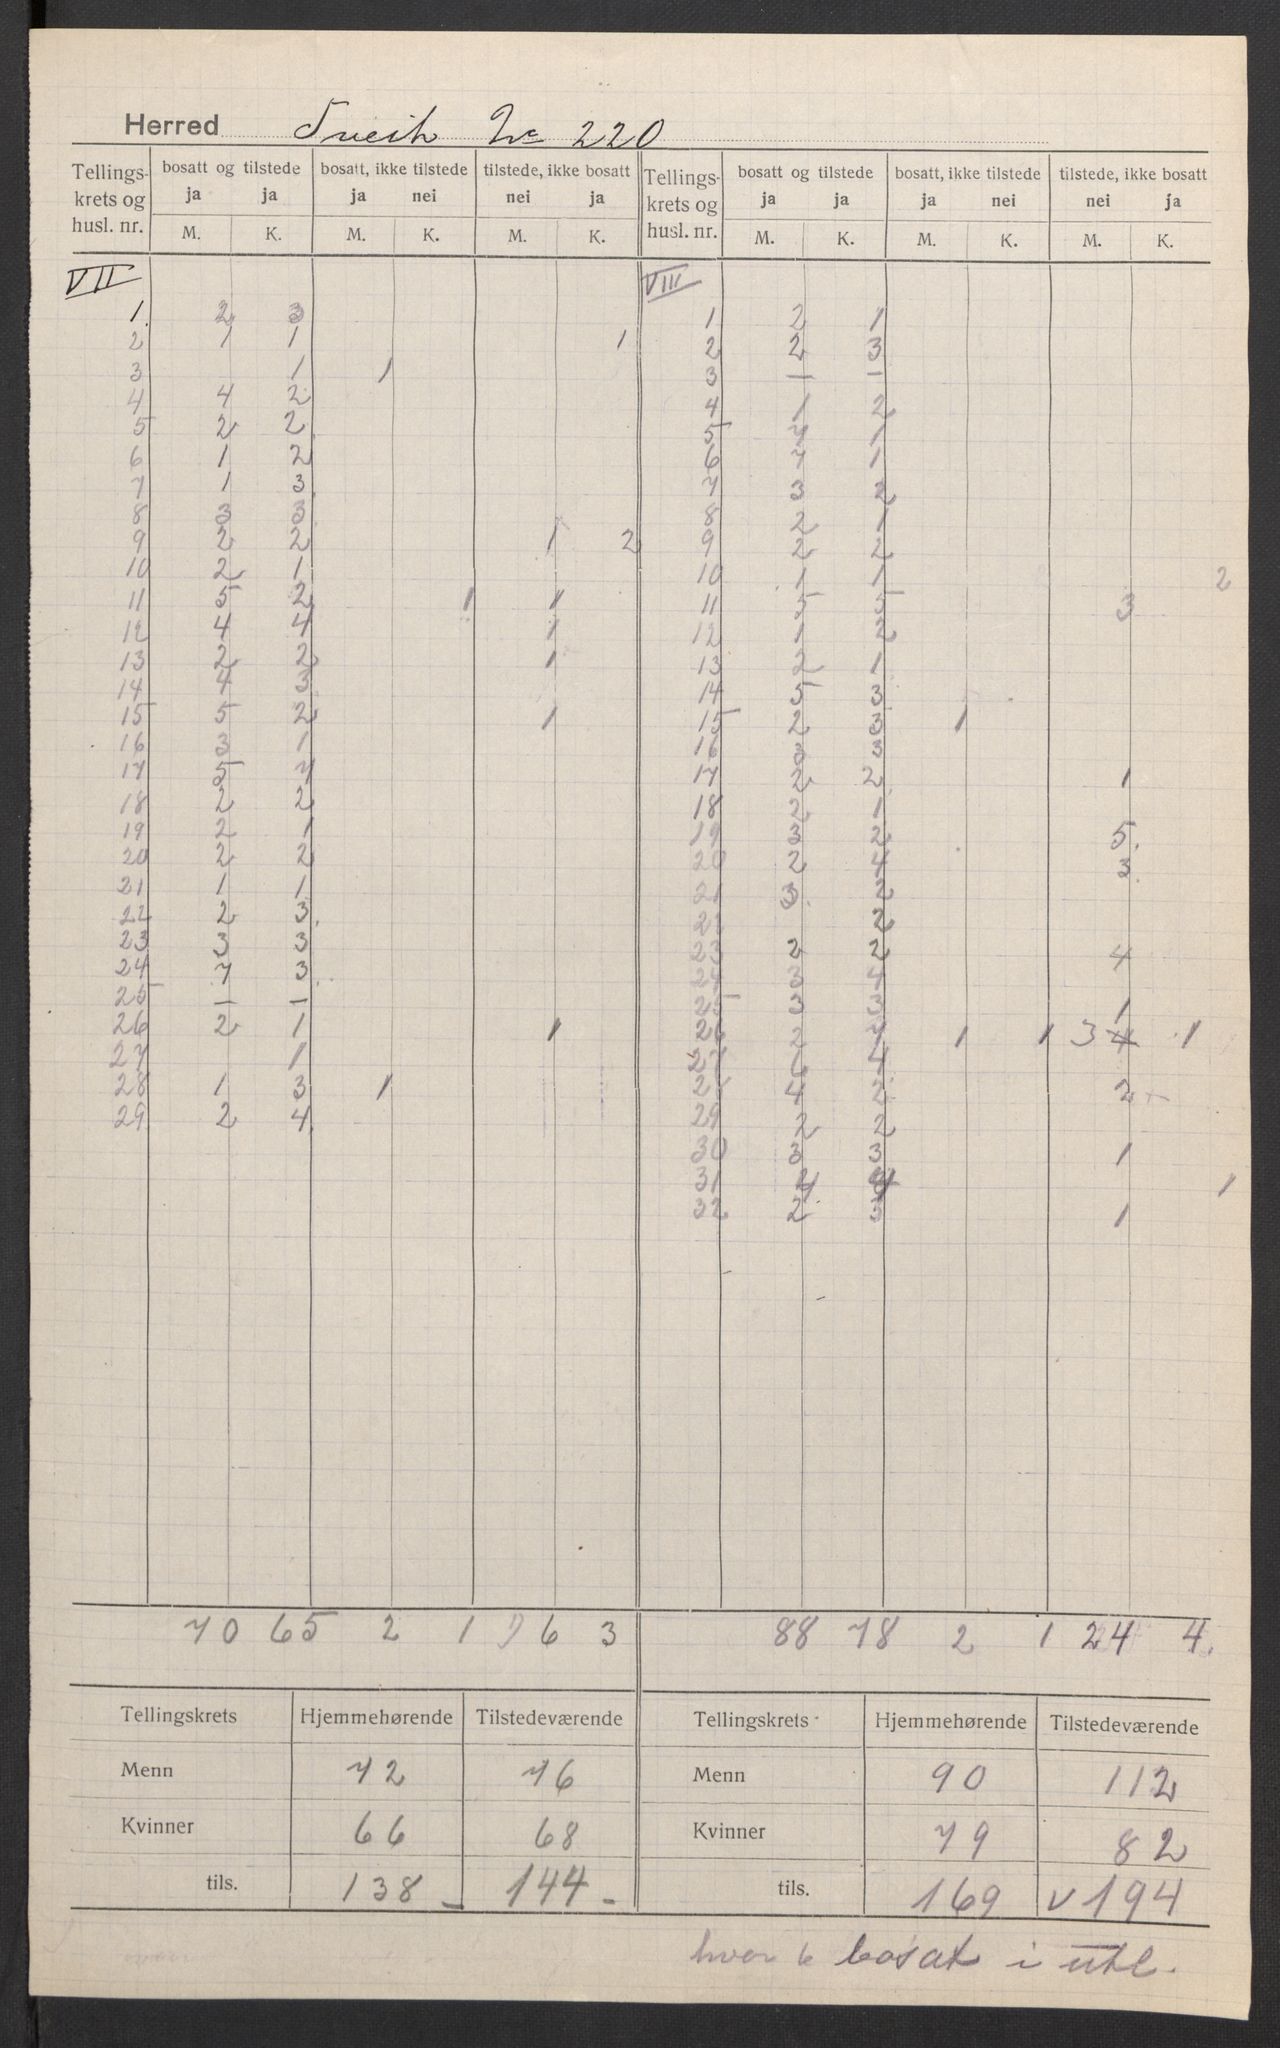 Herred Sveio No 220
Tellings- krets og husl. nr. | bosatt og tilstede ja ja | bosatt, ikke tilstede ja nei | tilstede, ikke bosatt nei ja | Tellings- krets og husl. nr. | bosatt og tilstede ja ja | bosatt, ikke tilstede ja nei | tilstede, ikke bosatt nei ja
M. K. M. K. M. K. M. K. M. K. M. K.
VII VIII
1. 2 3 | 1 2 1
2 1 1 1 | 2 2 3
3 1 1 | 3 — —
4 4 2 | 4 1 2
5 2 2 | 5 1
6 1 2 | 6 1
7 1 3 | 7 3 2
8 3 3 | 8 2 1
9 2 2 1 2 | 9 2 2
10 2 1 | 10 1 1 2
11 5 2 1 1 | 11 5 5 3
12 4 4 1 | 12 1 2
13 2 2 1 | 13 2 1
14 4 3 | 14 5 3
15 5 2 1 | 15 2 3 1
16 3 1 | 16 3 3
17 5 7 | 17 2 2 1
18 2 2 | 18 2 1
19 2 1 | 19 3 2 5.
20 2 2 | 20 2 4 3
21 1 1 | 21 3 2
22 2 3 | 22 2
23 3 3 | 23 2 2 4
24 7 3 | 24 3 4
25 — — | 25 3 3 1
26 2 1 1 | 26 2 1 1 3 4 1
27 1 | 27 6 4
28 1 3 1 | 28 4 2 2
29 2 4 | 29 2 2
30 3 3 1
31 1
32 2 3 1
70 65 2 1 6 3 | 88 78 2 1 24 4.
Tellingskrets | Hjemmehørende | Tilstedeværende | Tellingskrets | Hjemmehørende | Tilstedeværende
Menn 72 76 | Menn 90 112
Kvinner 66 68 | Kvinner 79 82
tils. 138 — 144 — | tils. 169 v 194
hvor 6 bosat i utl.